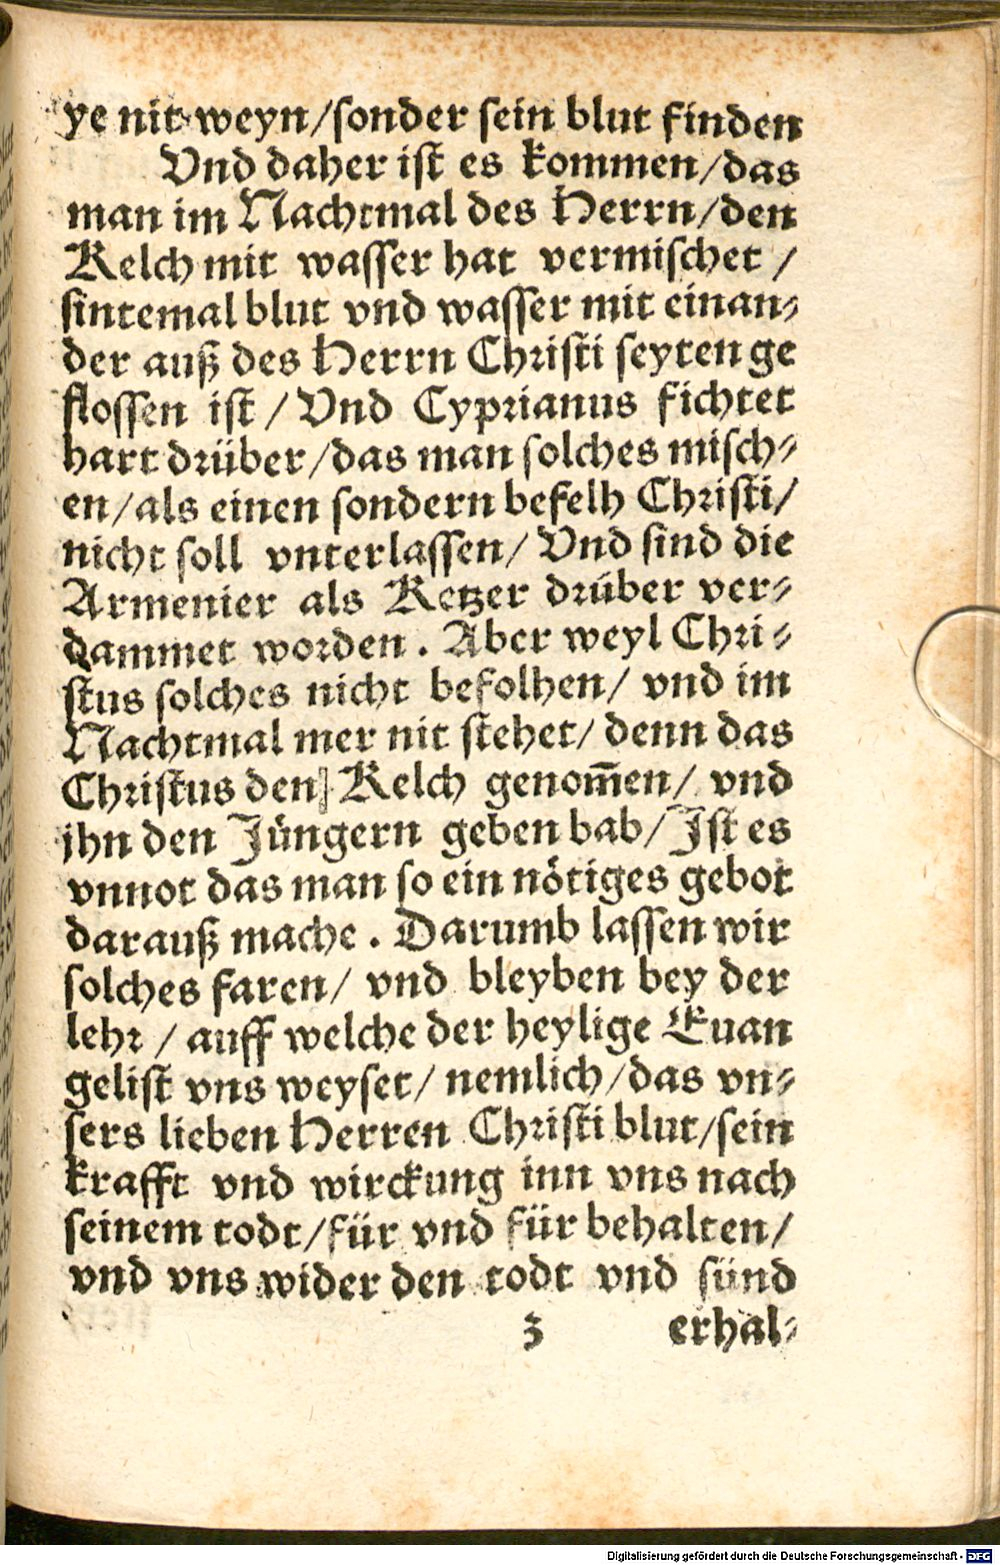 ye nit weyn/sonder sein blut finden
Vnd daher ist es kommen/das
man im Nachtmal des Herrn/den
Kelch mit wasser hat vermischet /
sintemal blut vnd wasser mit einan⸗
der auß des Herrn Christi seyten ge
flossen ist / Vnd Cyprianus fichtet
hart drüber/das man solches misch⸗
en/als einen sondern befelh Christi/
nicht soll vnterlassen/ Vnd sind die
Armenier als Ketzer drüber ver⸗
dammet worden. Aber weyl Chri⸗
stus solches nicht befolhen/ vnd im
Nachtmal mer nit stehet/ denn das
Christus den Kelch genom̅en/ vnd
ihn den Jüngern geben bab/ Jst es
vnnot das man so ein nötiges gebot
darauß mache. Darumb lassen wir
solches faren/ vnd bleyben bey der
lehr / auff welche der heylige Euan
gelist vns weyset/ nemlich/das vn⸗
sers lieben Herren Christi blut/sein
krafft vnd wirckung inn vns nach
seinem todt/für vnd für behalten/
vnd vns wider den todt vnd sünd
z erhal⸗
Digitalisierung gefördert durch die Deutsche Forschungsgemeinschaft - DFG